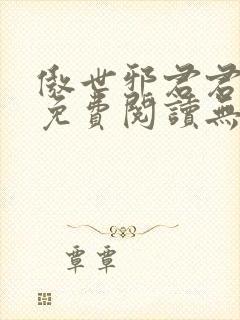 傲世邪君君
免費閱讀無
覃覃